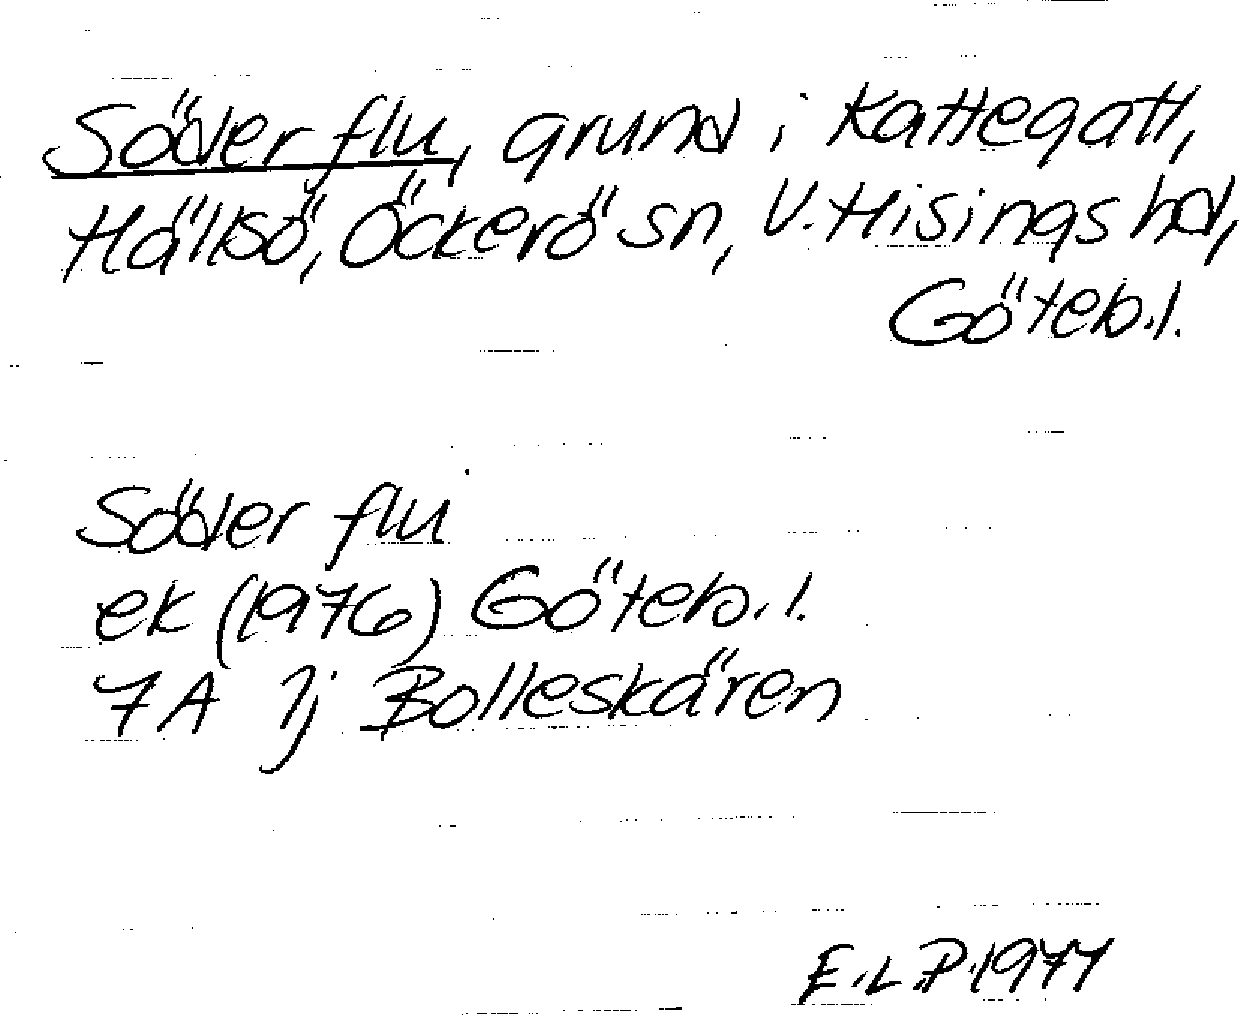 Söder flu, grund i Kattegatt,
Hälsö, Öckerö sn, V. Hisings hd,
Göteb.l.
Söder flu
ek (1976) Göteb.l.
7A 1j Bolleskären
E.L.P.1977